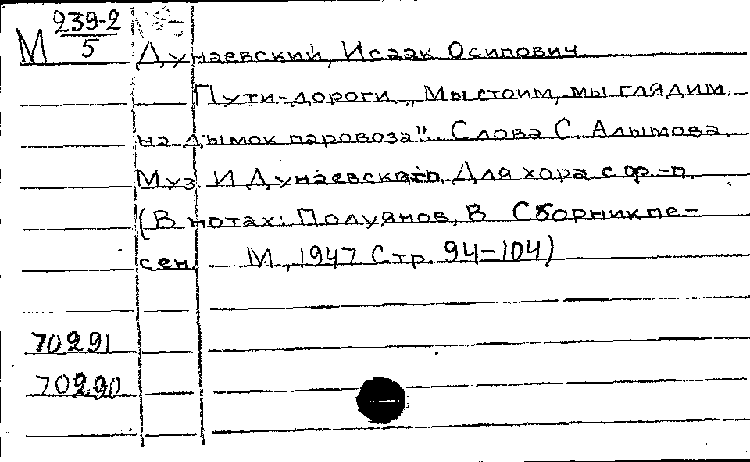 М 239-2
5
Дунаевский, Исаак Осипович
Пути-дороги. „Мы стоим, мы глядим
на дымок паровоза". Слова С. Алымова.
Муз. И Дунаевского. Для хора с ф.-п.
(В нотах: Полуянов, В. Сборник пе-
сен. М., 1947 Стр. 94-104)
70291
70290